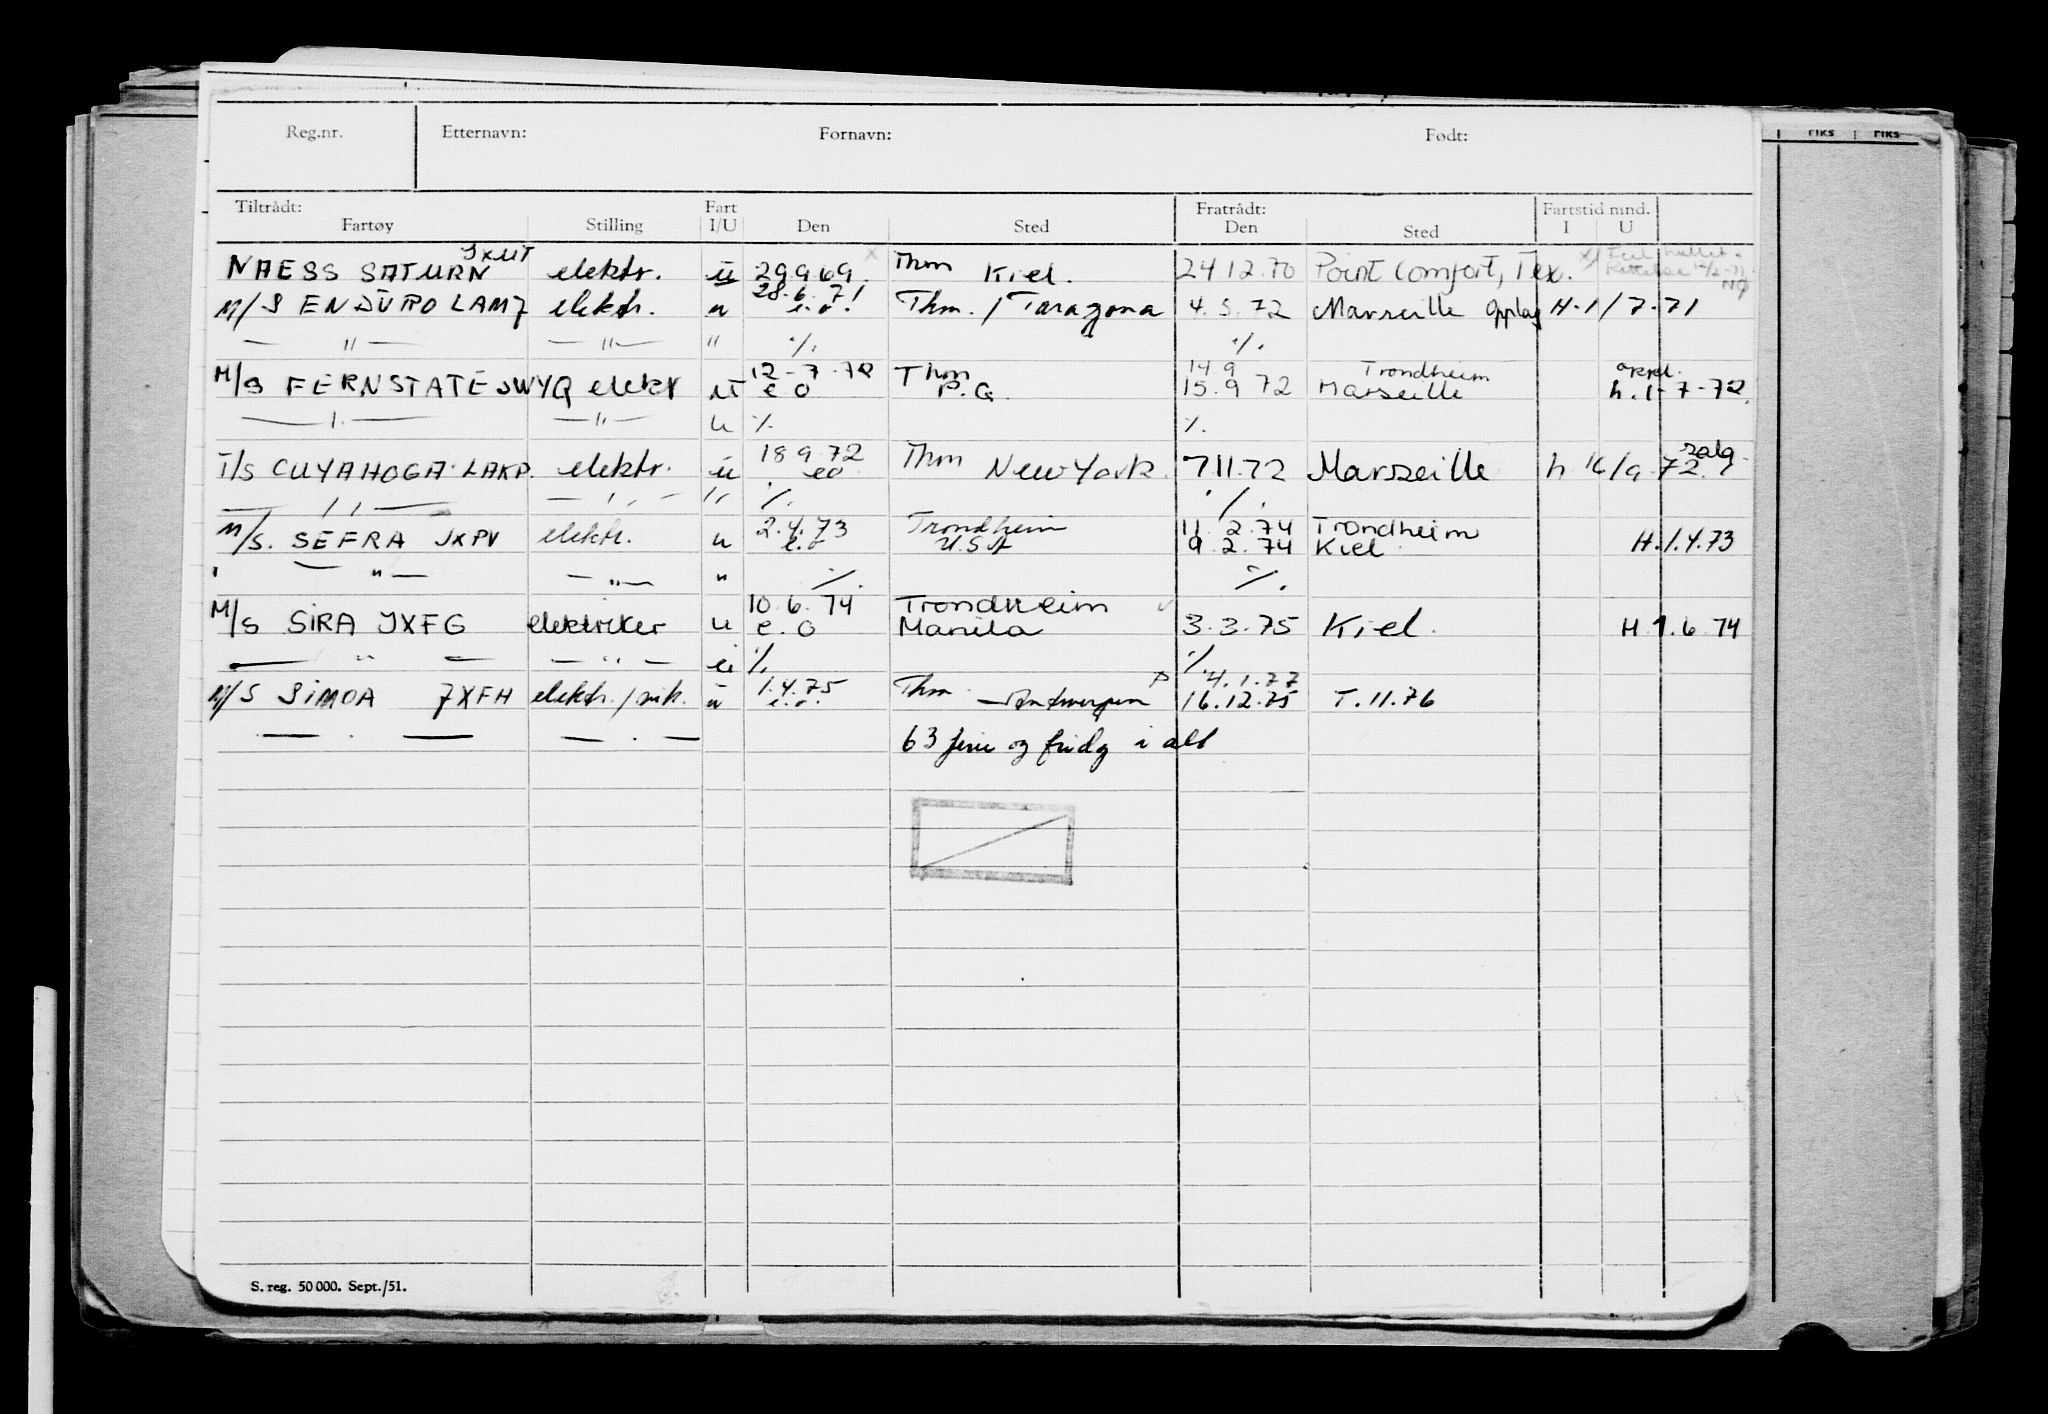 FIKS FIKS
Reg.nr. Etternavn: Fornavn: Født:
Tiltrådt: Fart Fratrådt: Fartstid mnd.
Fartøy Stilling I/U Den Sted Den Sted I U
JXUT
NAESS SATURN elektr. u 29.9.69. x Thm Kiel. 24.12.70 Point Comfort, Tex.
28.6.71
M/S ENDURO LAMJ elektr. u e.o. Thm. / Taragona 4.5.72 Marseille Opplag H.1/7-71
— " — — " — " ./. ./.
12-7-72 Thm 14 9 Trondheim
M/S FERNSTATE JWYQ elektr ut e o P.G. 15.9 72 Marseille h.1-7-72
— " — — " — u ./. ./.
18 9 72 salg
T/S CUYAHOGA LAKP. elektr. u eo Thm New York. 7 11.72 Marseille h 16/9 72
— " — — " — " ./. ./.
2.4.73 Trondheim 11.2.74 Trondheim
M/S. SEFRA JXPV elektr. u e.o U.S.A 9.2.74 Kiel H.1.4.73
— " — — " — " ./. ./.
10.6.74 Trondheim
M/S SIRA JXFG elektriker u e.o Manila 3.3.75 Kiel. H.1.6.74
— " — — " — u ./. ./.
1.4.75 4.1.77
M/S SIMOA JXFH elektr./ u e.o. Thm. — Antwerpen 16.12.75 T.11.76
— . — — . — 63 ferie og fridg i alt
S. reg. 50 000. Sept./51.